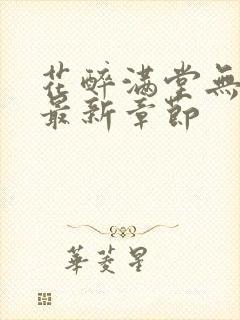 花醉满堂無
最新章節
華菱星